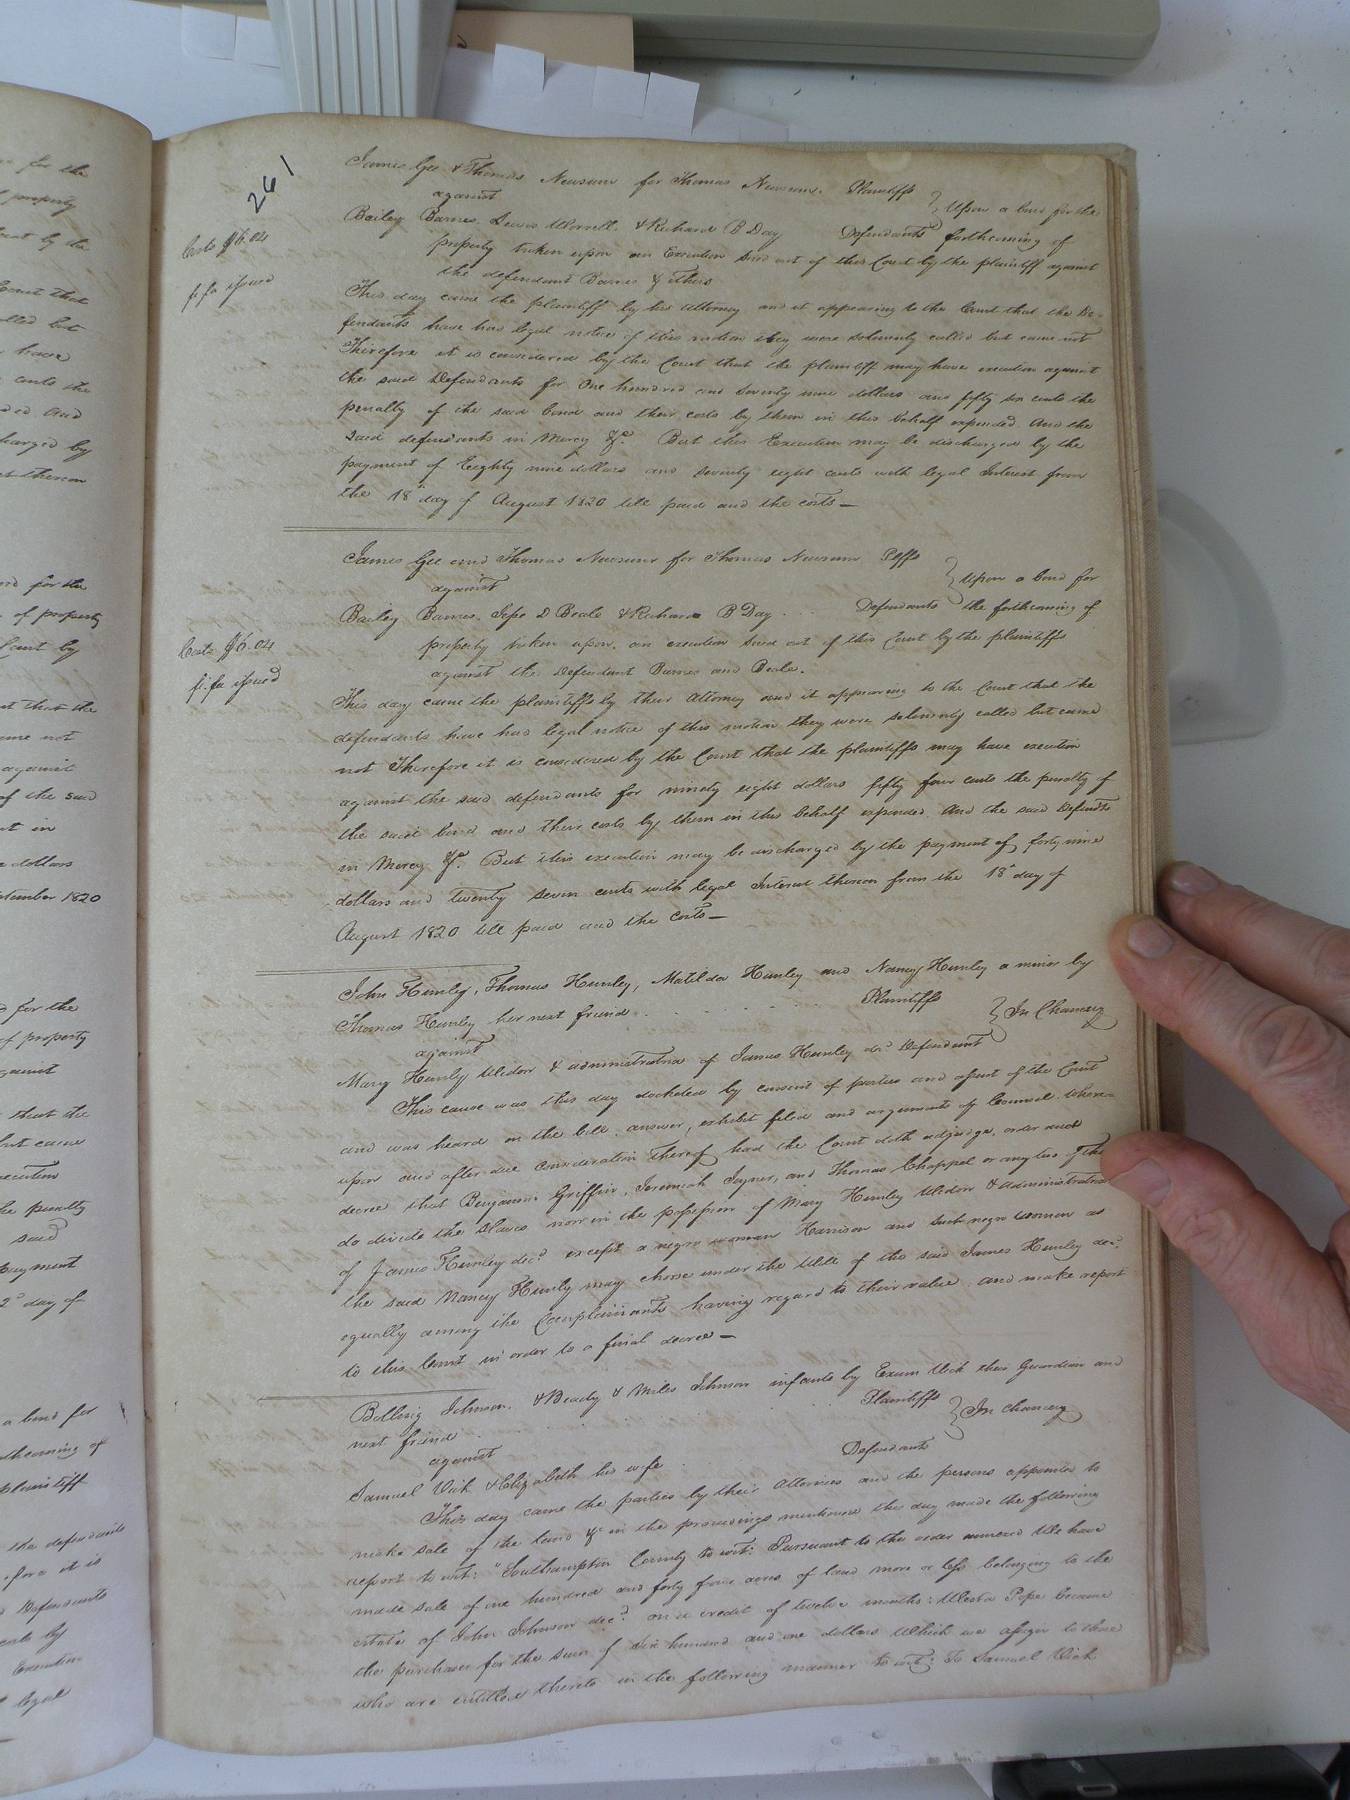 261
James Gee & Thomas Newsum for Thomas Newsum. Plaintiffs
against
Upon a bond for the
Bailey Barnes. Lewis Worrell. & Richard B Day Defendants forthcoming of
Costs $6.04
property taken upon an Execution sued out of this Court by the plaintiff against
fi fa issued
the defendant Barnes &
This day came the plaintiff by his attorney and it appearing to the Court that the De-
fendants have had legal notice of this motion they were solemnly called but came not
Therefore it is considered by the Court that the plaintiff may have execution against
the said Defendants for One hundred and seventy nine dollars and fifty six cents the
penalty of the said bond and their costs by them in this behalf expended. And the
said defendants in Mercy &c. But this Execution may be discharged by the
payment of Eighty nine dollars and seventy eight cents with legal Interest from
the 18th day of August 1820 till paid and the costs—
James Gee and Thomas Newsum for Thomas Newsum Plffs
against
Upon a bond for
Bailey Barnes. Jepe D Beale & Richard B Day . . . Defendants the forthcoming of
Costs $6.04
property taken upon. an execution sued out of this Court by the plaintiffs
fi.fa issued
against the Defendant Barnes and Beale.
This day came the plaintiffs by their Attorney and it appearing to the Court that the
defendants have had legal notice of this motion they were solemnly called but came
not Therefore it is considered by the Court that the plaintiffs may have execution
against the said defendants for ninety eight dollars fifty four cents the penalty of
the said bond and their costs by them in this behalf expended. And the said Defendts
in Mercy &c. But this execution may be discharged by the payment of forty nine
dollars and twenty seven cents with legal Interest thereon from the 18th day of
August 1820 till paid and the costs—
John Hunley, Thomas Hunley, Matilda Hunley and Nancy Hunley a minor by
Thomas Hunley her next friend . . . . . Plaintiffs
In Chancery
against
Mary Hunly Widow & administratrix of James Hunley decd Defendant
This cause was this day docketed by consent of parties and assent of the Court
and was heard on the bill. answer, exhibit filed and arguments of Counsel. Where-
upon and after due consideration thereof had the Court doth adjudge. order and
decree that Benjamin Griffin, Jeremiah Joyner, and Thomas Chappel or any two of them
do divide the Slaves now in the possession of Mary Hunley Widow & administratrix
of James Hunley decd except a negro woman Harrison and such negro woman as
the said Nancy Hunly may choose under the Will of the said James Hunley decd.
equally among the Complainants having regard to their value. and make report
to this Court in order to a final decree—
Bolling Johnson. & Beady & Miles Johnson infants by Exum Vick their Guardian and
next friend . . . . . Plaintiffs
In chancery
against
Samuel Vick & Elizabeth his wife . Defendants
This day came the parties by their Attornies and the persons appointed to
make sale of the land &c in the proceedings mentioned this day made the following
report to wit: "Southampton County to wit: Pursuant to the order annexed We have
made sale of one hundred and forty four acres of land more or less belonging to the
estate of John Johnson decd. on a credit of twelve months: Pope became
the purchaser for the sum of six hundred and one dollars Which we assign to those
who are entitled thereto in the following manner to wit: To Samuel Vick